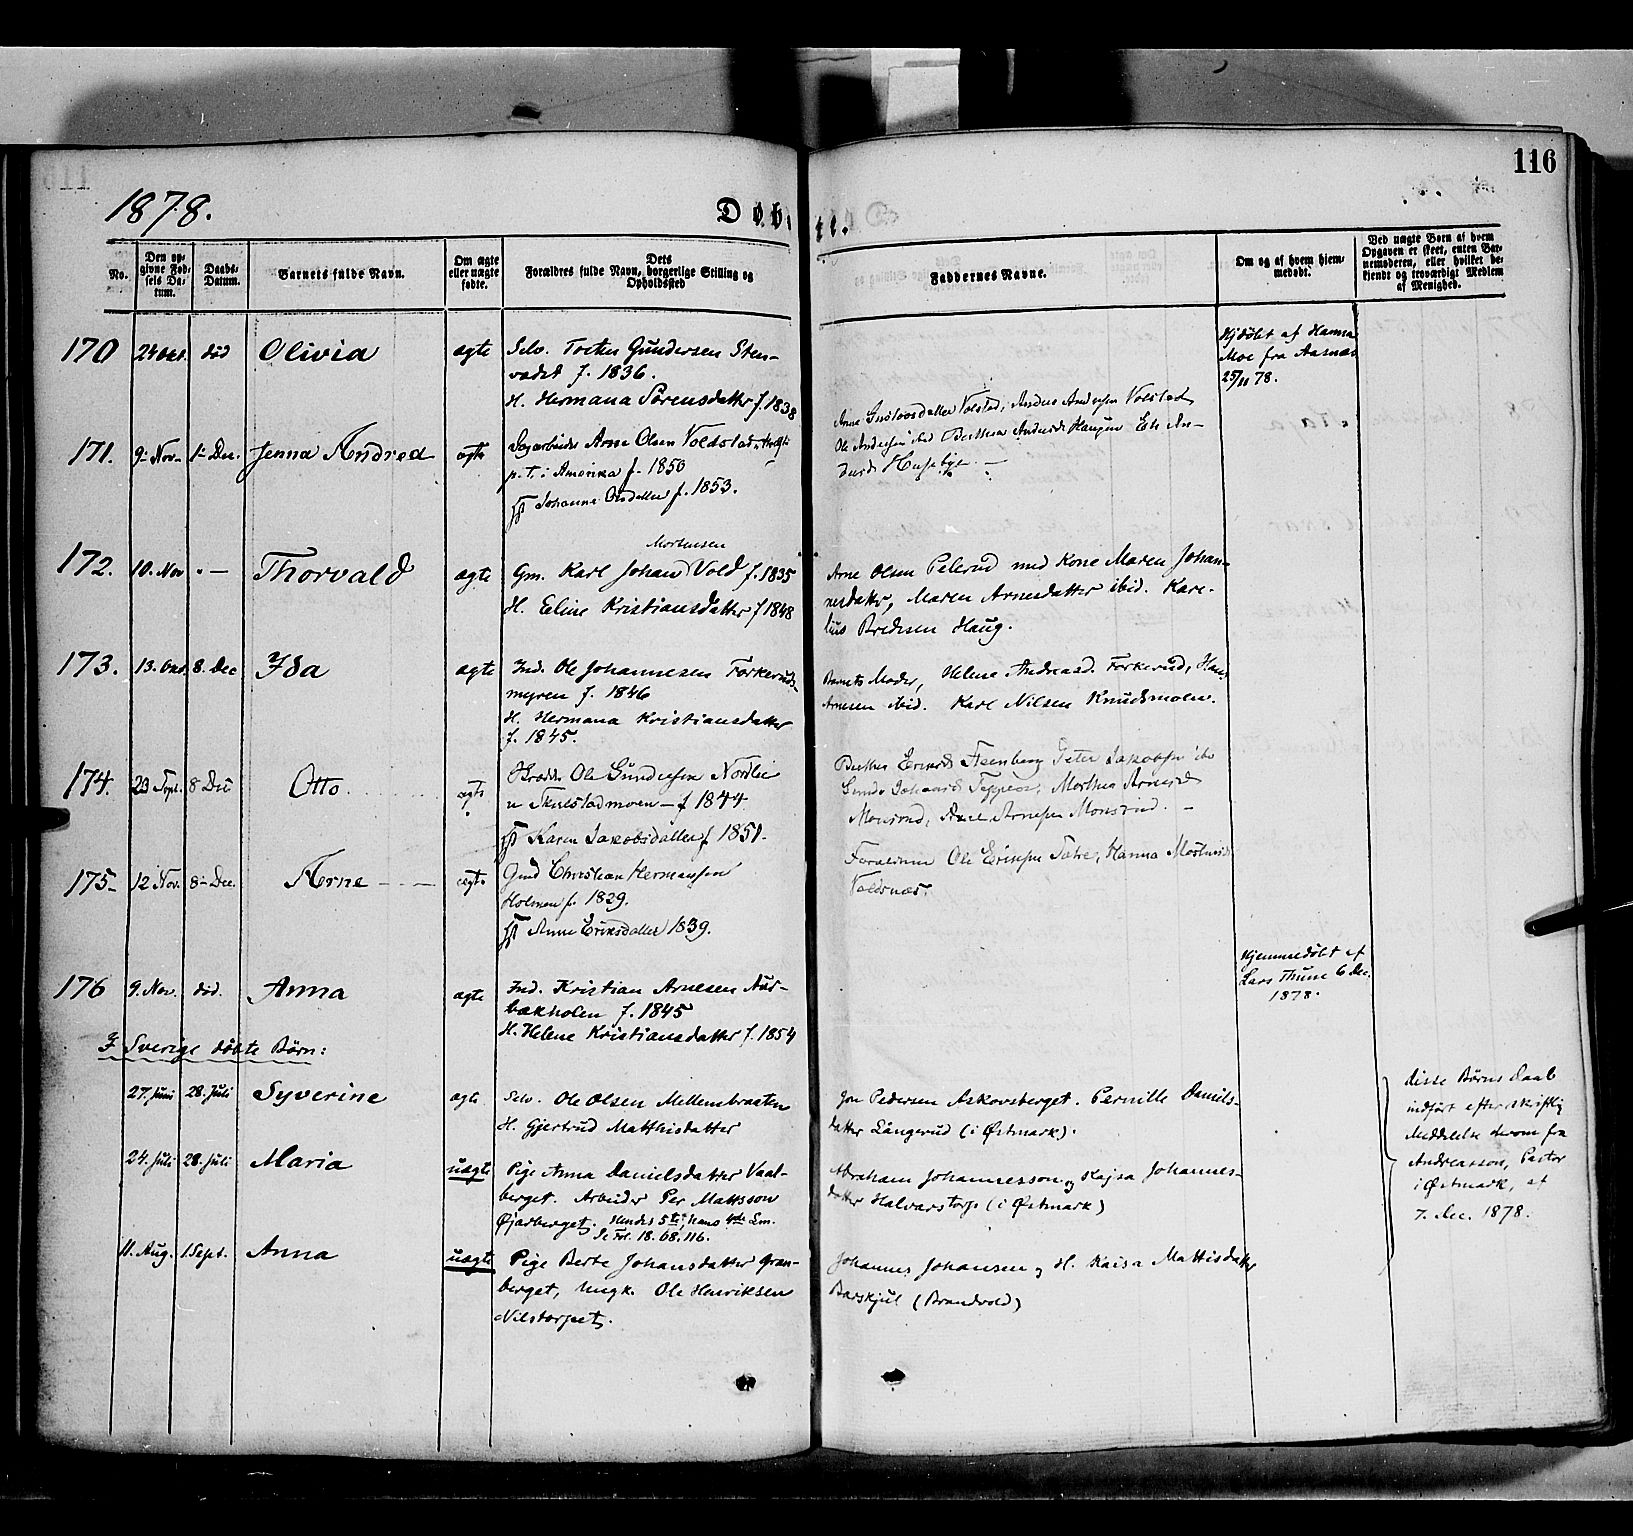 116
1878.
Døbte.
No.
Den opgivne Fødsels Datum.
Daabs-Datum.
Barnets fulde Navn.
Om ægte eller uægte fødte.
Dets Forældres fulde Navn, borgerlige Stilling og Opholdssted
Faddernes Navne.
Om og af hvem hjemmedøbt.
Ved uægte Børn af hvem Opgaven er skeet, enten Barnemoderen, eller hvilket bekjendt og troværdigt Medlem af Menighed.
170 24 Okt. død Olivia ægte Selv. Gundersen Sten-
vadet f. 1836.
H. Hermana Sörensdatter f. 1838
Hjdøbt af Hanna
Moe fra Aasnæs
25/11 78.
171. 9- Nov- 1- Dec. Jenna Andrea ægte Arne Olsen Voldstad
p. t. i Amerika f. 1850
Johanne Olsdatter f. 1853.
Anna Voldstad, Andreas Andersen Volstad
Ole Andersen ibid Berthea Anders Haugen Eli An-
ders Husebye. -
172. 10. Nov " - Thorvald ægte Gm. Karl Johan Mortensen Vold f. 1835
H. Eline Kristiansdatter f 1848
Arne Olsen Pelerud med Kone Maren Johan-
nesdatter, Maren Arnesdatter ibid. Kare-
lius Bredesen Haug.
173. 13. Okt. 8. Dec Ida ægte Ind. Ole Johannesen Førkeruds-
myren f. 1846
H. Hermana Kristiansdatter
f. 1845.
Barnets Moder, Helene Andreasd. Førkerud, Hans
Arnesen ibid. Karl Nilsen Knudsmoen.
174. 23 Sept. 8 Dec Otto ægte Ole Gundersen Nordlie
u Skulstadmoen - f 1844
Karen Jakobsdatter f 1851-
Berthe Eriksd Steenberg Peter Jakobsen ibd
Morthea Arnesd
Monsrud, Axel Arnesen Monsrud. -
175- 12 Nov. 8- Dec. Arne - - - ægte Gmd Christian Hermansen
Holmen f. 1829.
Anne Eriksdatter 1839.
Forældrene Ole Eriksen Hanna
Voldsnæs.
176 9. Nov. død. Anna ægte Ind. Kristian Arnesen Aur-
bækholen f. 1845
H. Helene Kristiansdatter f. 1854
Hjemmedøbt af
Lars Thune 6 Dec.
1878.
I Sverige døbte Børn:
27. Juni 28. Juli Syverine ægte Selv. Ole Olsen Mellembraaten
H. Gjertrud Matthisdatter
Jon Pedersen Askovsberget. Pernille Daniels-
datter Långerud (i Østmark).
24. Juli 28. Juli Maria uægte Pige Anna Danielsdatter Vaal-
berget. Arbeider Per Mattsson
Øjarberget. Hendes 5te, hans 4de Lm.
Se Fol. 18. 68. 116.
Abraham Johannesson og Kajsa Johannes-
datter Halvarstorp (i Østmark)
11. Aug. 1 Sept. Anna uægte Pige Berte Johansdatter Gran-
berget, Ungk. Ole Henriksen
Nilstorpet.
Johannes Johansen og H. Kaisa Mattisdatter
Barskjul (Brandvold)
Disse Børns Daab
indført efter skriftlig
Meddelelse derom fra
Andreasson, Pastor
i Østmark, af
7. Dec. 1878.